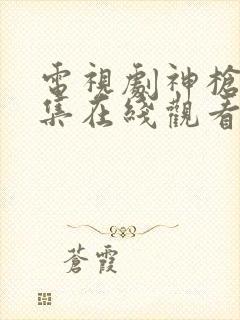 電視劇神槍
集在綫觀看
蒼霞